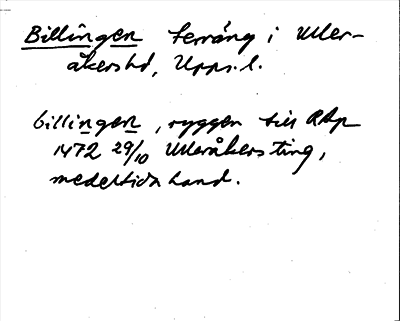 Billingen terräng i Uller-
åkershd, Upps. l.
billingen, ryggen till RAp
1472 29/10 Ulleråkers ting,
medeltida hand.